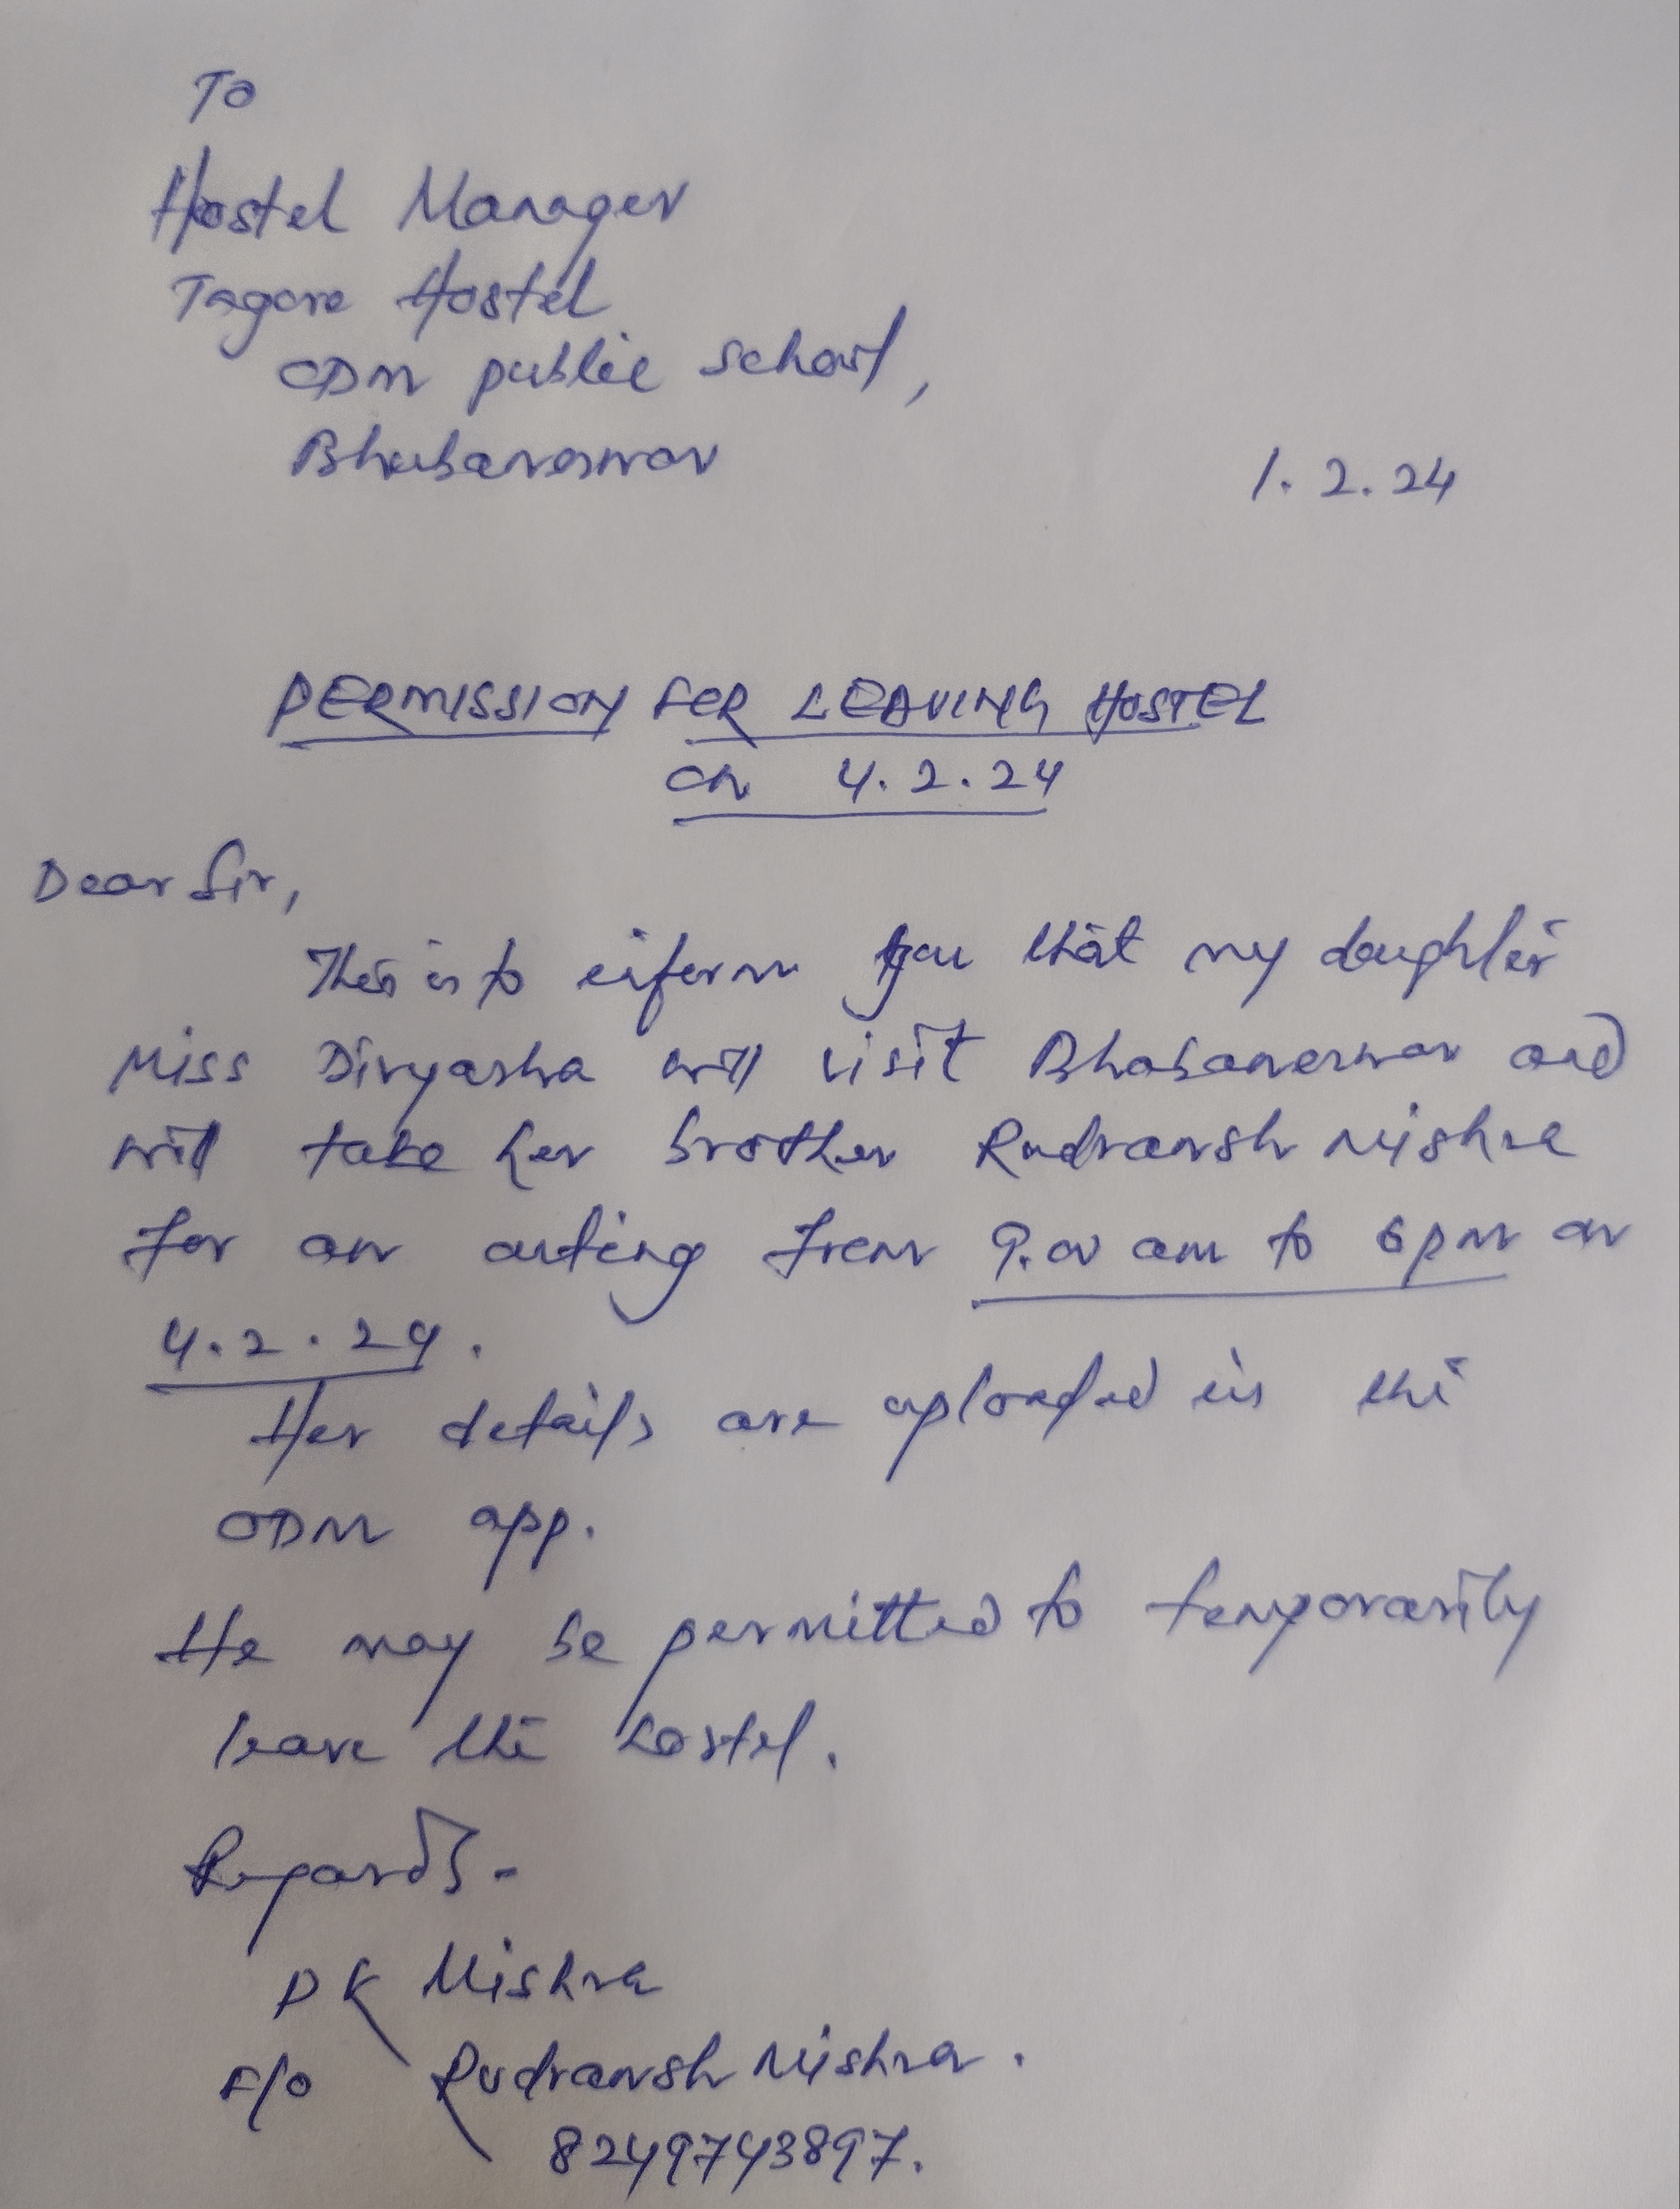 To
Hostel Manager
Tagore Hostel
ODM public school,
Bhubaneswar
1.2.24
PERMISSION FOR LEAVING HOSTEL
on 4.2.24
Dear Sir,
This is to inform you that my daughter
Miss Divyasha will visit Bhubaneswar and
will take her brother Rudransh Mishra
for an outing from 9.00 am to 6 pm on
4.2.24.
Her details are uploaded in the
ODM app.
He may be permitted to temporarily
leave the hostel.
Regards-
DK Mishra
F/o Rudransh Mishra.
8249743897.